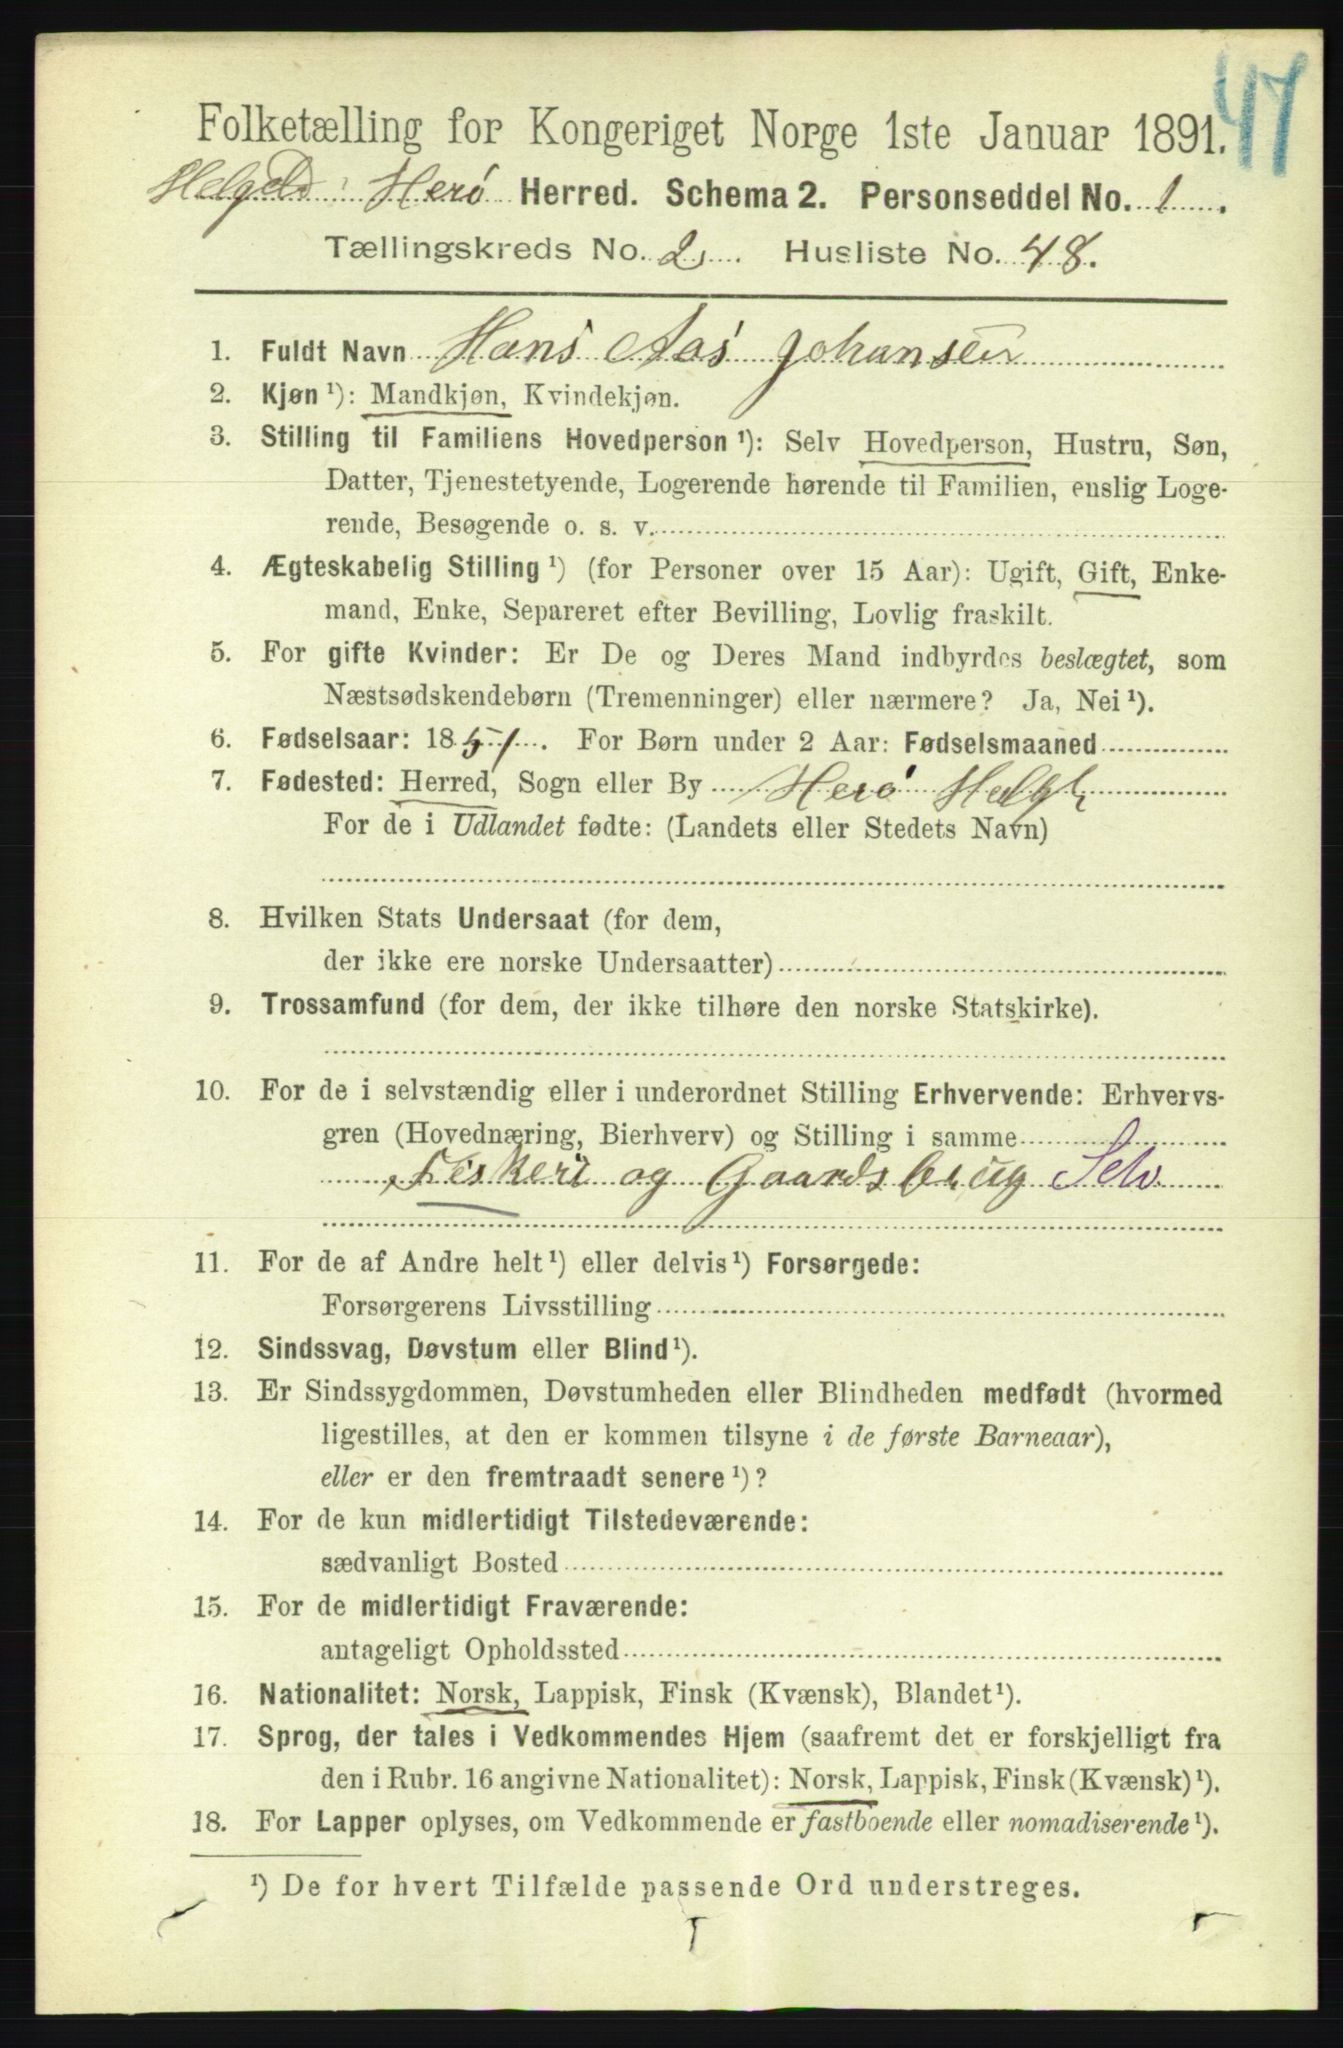 47
Folketælling for Kongeriget Norge 1ste Januar 1891.
Herø Herred. Schema 2. Personseddel No. 1.
Tællingskreds No. 2. Husliste No. 48.
1. Fuldt Navn Hans Aas Johansen
2. Kjøn ¹): Mandkjøn, Kvindekjøn.
3. Stilling til Familiens Hovedperson ¹): Selv Hovedperson, Hustru, Søn,
Datter, Tjenestetyende, Logerende hørende til Familien, enslig Loge-
rende, Besøgende o. s. v.
4. Ægteskabelig Stilling ¹) (for Personer over 15 Aar): Ugift, Gift, Enke-
mand, Enke, Separeret efter Bevilling, Lovlig fraskilt.
5. For gifte Kvinder: Er De og Deres Mand indbyrdes beslægtet, som
Næstsødskendebørn (Tremenninger) eller nærmere? Ja, Nei ¹).
6. Fødselsaar: 1851. For Børn under 2 Aar: Fødselsmaaned
7. Fødested: Herred, Sogn eller By Herø Helgl
For de i Udlandet fødte: (Landets eller Stedets Navn)
8. Hvilken Stats Undersaat (for dem,
der ikke ere norske Undersaatter)
9. Trossamfund (for dem, der ikke tilhøre den norske Statskirke).
10. For de i selvstændig eller i underordnet Stilling Erhvervende: Erhvervs-
gren (Hovednæring, Bierhverv) og Stilling i samme
Fiskeri og Gaardsbrug Selv
11. For de af Andre helt ¹) eller delvis ¹) Forsørgede:
Forsørgerens Livsstilling
12. Sindssvag, Døvstum eller Blind ¹).
13. Er Sindssygdommen, Døvstumheden eller Blindheden medfødt (hvormed
ligestilles, at den er kommen tilsyne i de første Barneaar),
eller er den fremtraadt senere ¹)?
14. For de kun midlertidigt Tilstedeværende:
sædvanligt Bosted
15. For de midlertidigt Fraværende:
antageligt Opholdssted
16. Nationalitet: Norsk, Lappisk, Finsk (Kvænsk), Blandet ¹).
17. Sprog, der tales i Vedkommendes Hjem (saafremt det er forskjelligt fra
den i Rubr. 16 angivne Nationalitet): Norsk, Lappisk, Finsk (Kvænsk) ¹).
18. For Lapper oplyses, om Vedkommende er fastboende eller nomadiserende ¹).
¹) De for hvert Tilfælde passende Ord understreges.